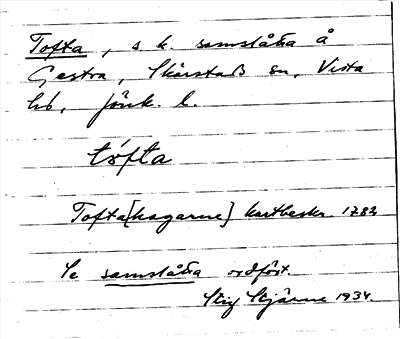 Tofta, s. k. samståka å
Gestra, Skärstads sn, Vista
hd, Jönk. l.
tófta
Tofta[hagarne] kartbeskr. 1782
Se samståka ordfört.
Stig Stjärne 1934.